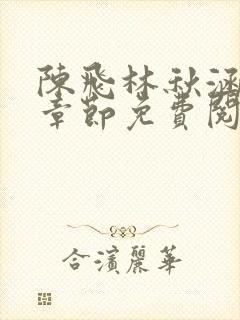 陳飛林秋涵
章節免費閱
合濱麗華